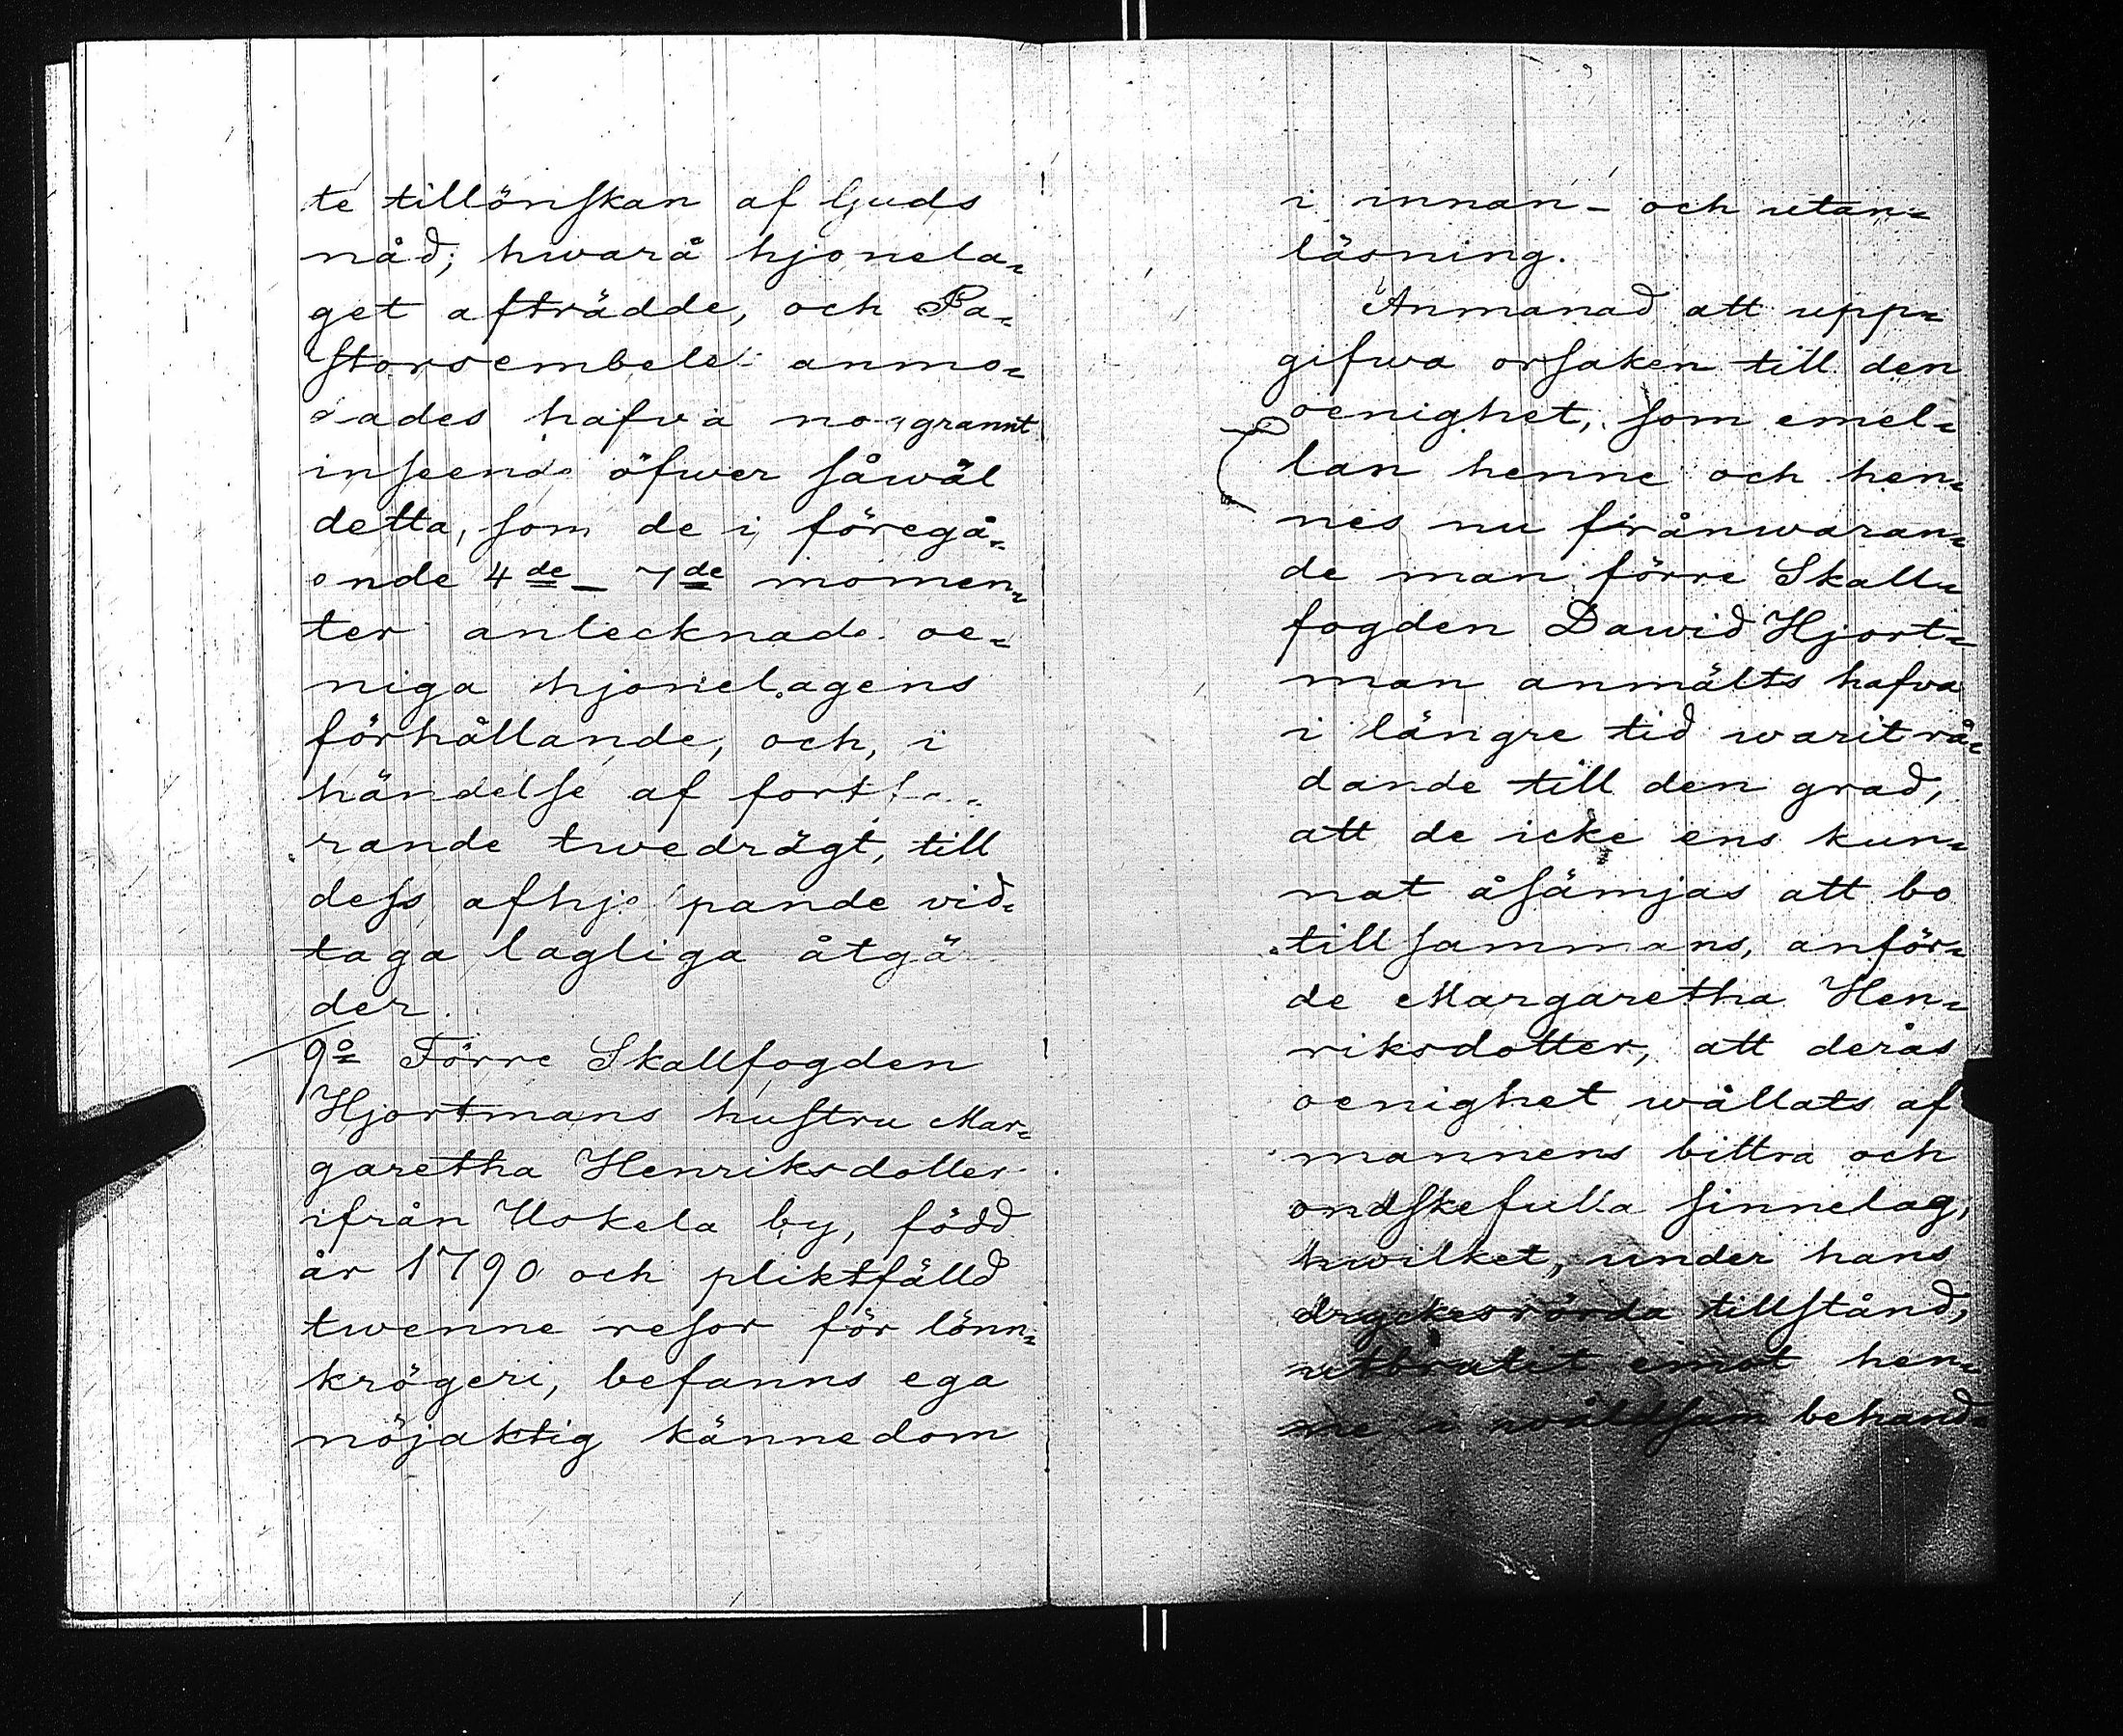 te tillönskan af Guds
nåd; hwarå hjonela-
get afträdde, och Pa-
storsembetet anmo-
dades hafva nogrannt
inseende öfwer såwäl
detta, som de i föregå-
ende 4de - 7de momen-
ter antecknade oe-
niga hjonelagens
förhållande, och, i
händelse af fortfa-
rande twedrägt, till
dess afhjelpande vid-
taga lagliga åtgär
der.
9o Förre Skallfogden
Hjortmans hustru Mar-
garetha Henriksdotter
ifrån Uskela by, född
år 1790 och pliktfälld
twenne resor för lönn-
krögeri, befanns ega
nöjaktig kännedom
i innan- och utan-
läsning.
Anmanad att upp-
gifwa orsaken till den
oenighet, som emel-
lan henne och hen-
nes nu frånwaran-
de man förre Skall-
fogden Dawid Hjort-
man anmälts hafva
i längre tid warit rå-
dande till den grad,
att de icke ens kun-
nat åsämjas att bo
tillsammans, anför-
de Margaretha Hen-
riksdotter, att deras
oenighet wållats af
mannens bittra och
ondskefulla sinnelag,
hwilket, under hans
dryckesrörda tillstånd,
utbrutit emot hen-
ne i wåldsam behand-